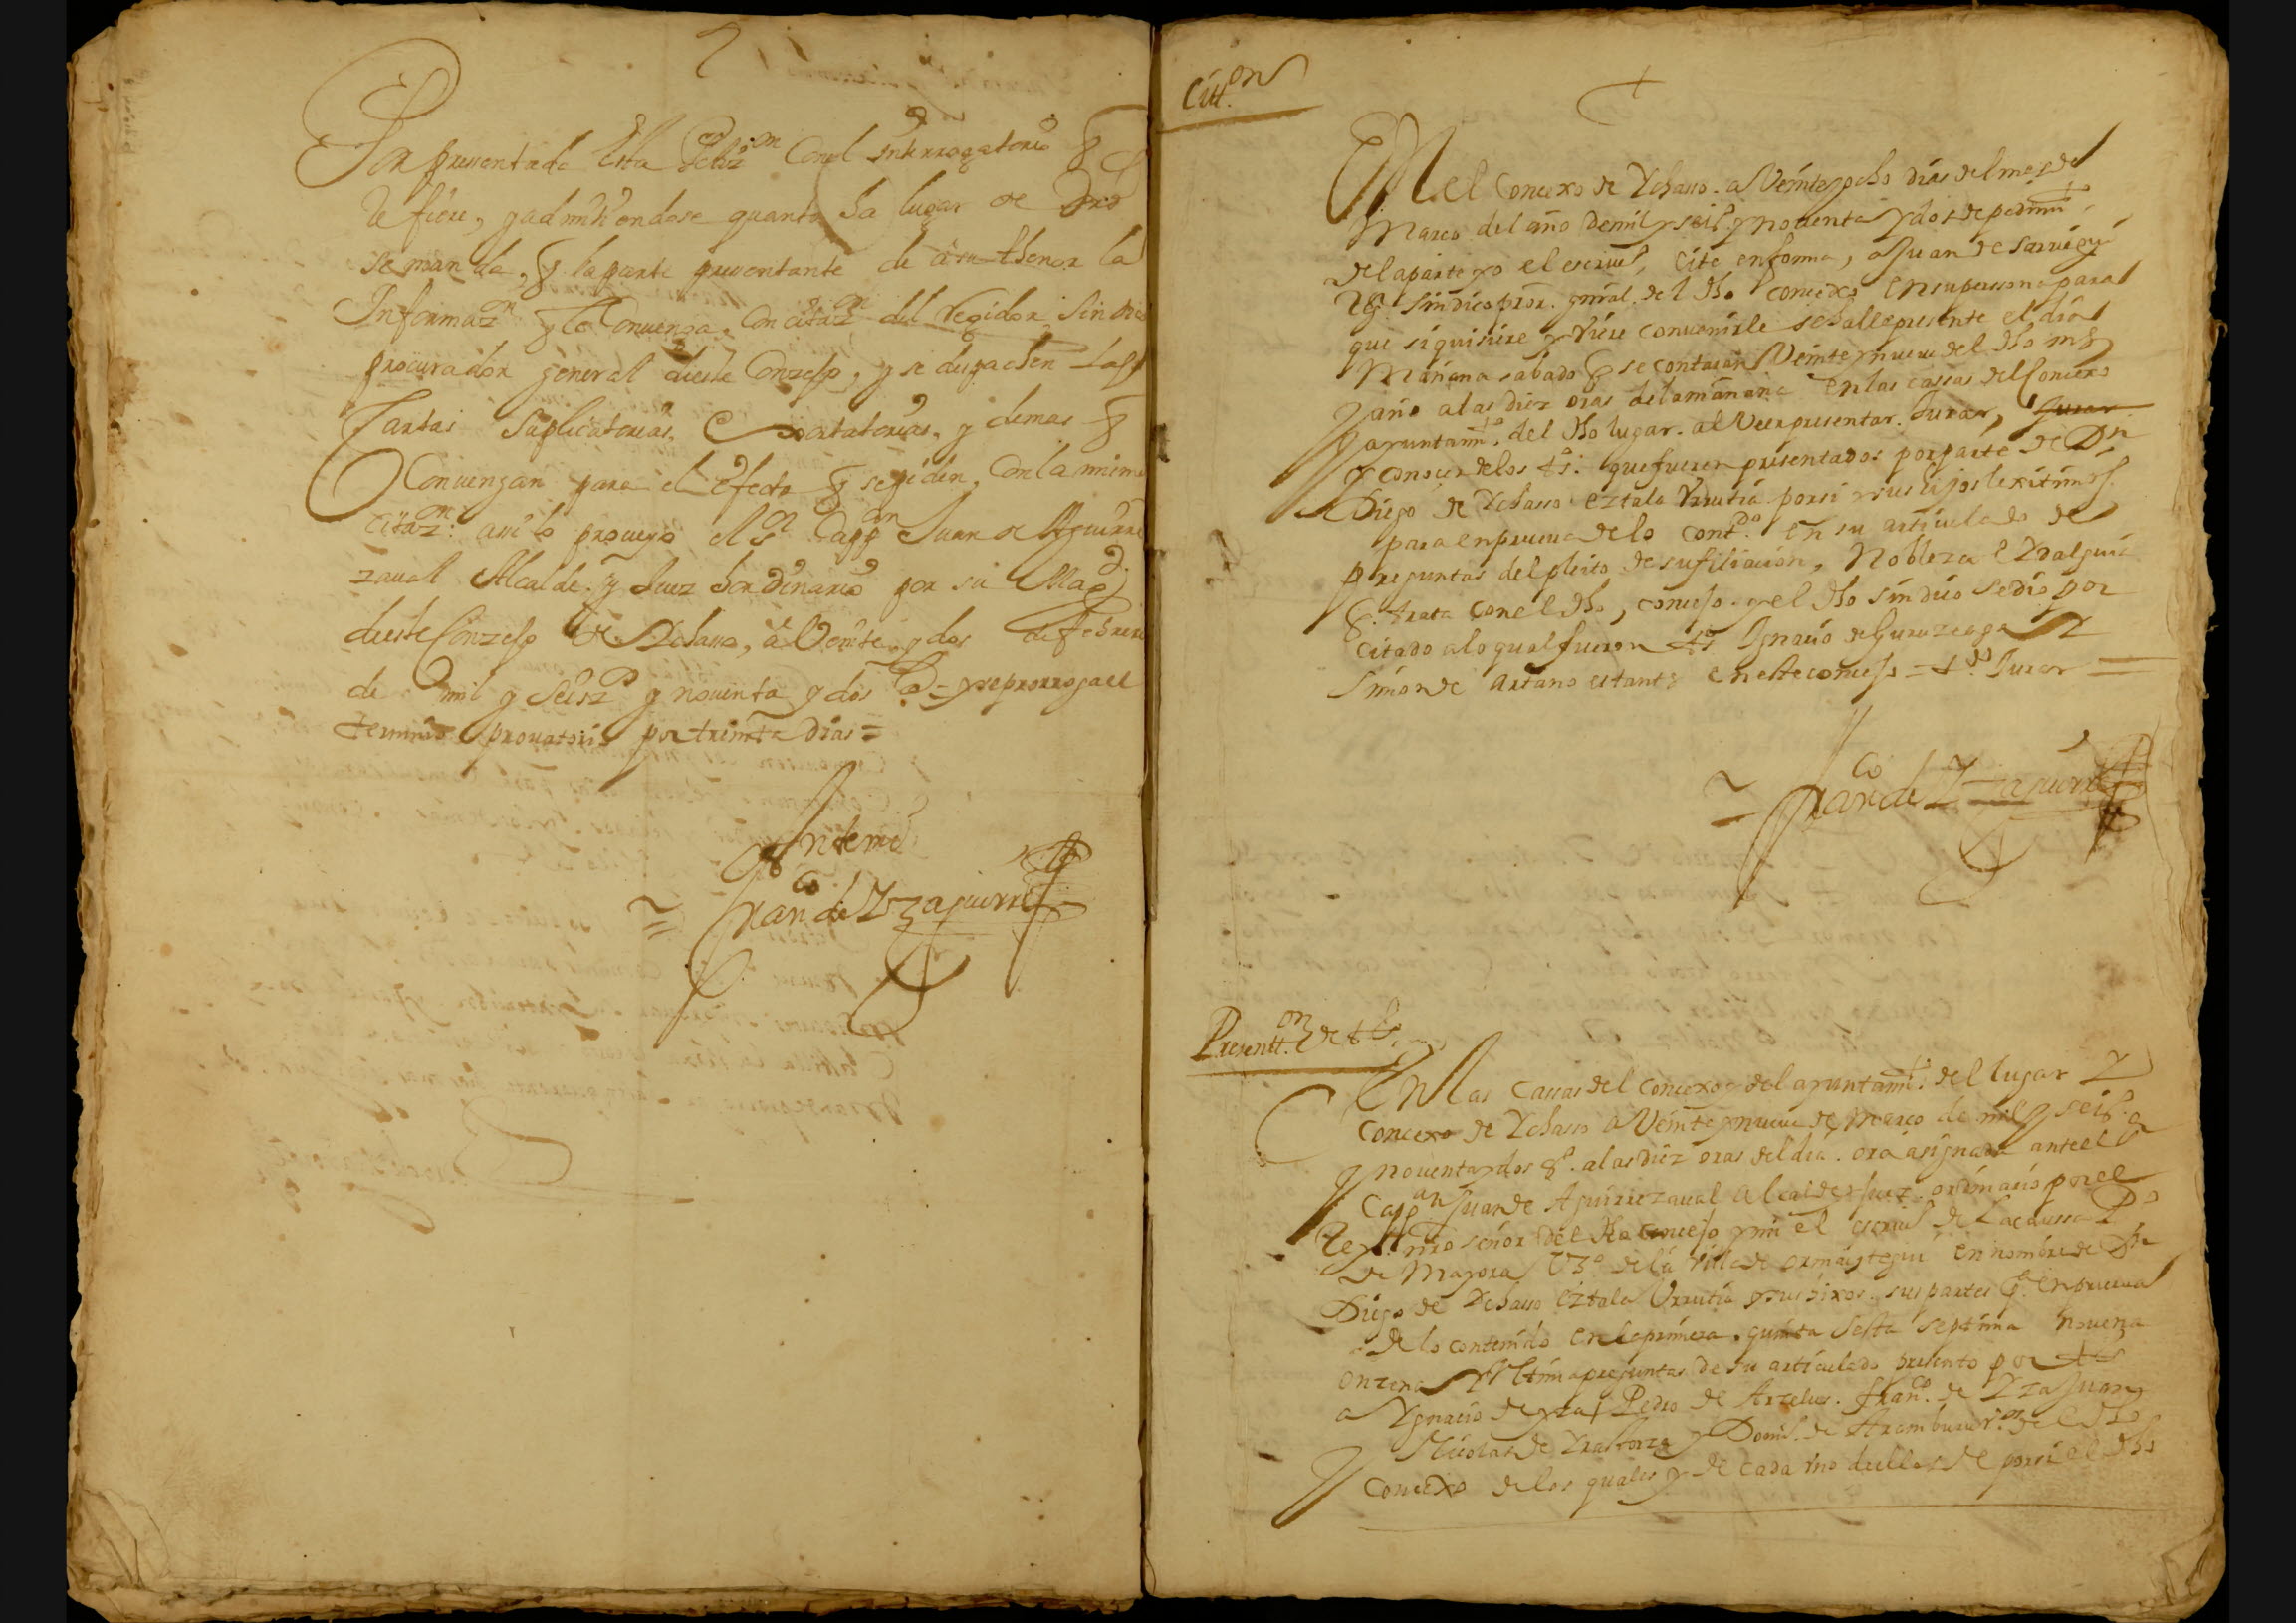 Por presentada esta Petiz.on con el Interrogatorio q
refiere, y admitiendose quanto ha lugar de Dro
se manda, q la parte presentante de a su thenor la
Informaz.n q le Convenga, con citaz.n del Regidor Sindico
procurador general deeste Conzejo, y se despachen las
Cartas Suplicatorias, Exortatorias, y demas q
Convengan para el Efecto q se piden, Con la misma
citaz.n: assi lo proueyo el S.r Capp.an Juan de Aguirre
zaual Alcalde y Juez hordinario por su Mag.d
deeste Conzejo de Ychasso, a Veinte y dos de febrero
de mil y Seisz.os y nouenta y dos = y se prorroga el
termino prouatorio por treinta dias =
Ante mi
Fran.co de Yzaguirre
Citt.on
En el Concexo de Ychasso a Veinte y ocho dias del mes de
Março del año de mil y seis.s y nouenta y dos de pedimi.to
de la parte yo el escriu.o cite en forma, a Juan de Sarriegui
reg.r sindico pror. gnral. del dho concexo en su perssona para
que si quisiere y viere conuenirle se halle presente el dia
Mañana sabado q se contaran Veinte y nueue del dho mes
y año a las diez oras de la mañana en las cassas del Concexo
y ayuntam.to del dho lugar al Veer presentar Jurar,
y conocer de los t.os que fueren presentados por parte de D.n
Diego de Ychasso eztala Vrrutia por si y sus hijos lexitimos
para en prueua de lo cont.do en su articulado de
preguntas del pleito de su filiacion, Nobleza e Ydalguia
q. trata con el dho, concejo y el dho sindico se dio por
citado a lo qual fueron t.os Ignacio de Guruzeaga y
Simon de Artano estantes en este concejo =
Fran.co de Yzaguirre
Presentt.on de t.os
En las cassas del concexo y del ayuntam.to del lugar y
Concexo de Ychasso a Veinte y nueue de Março de mil y seis.s
y nouenta y dos a.s a las diez oras del dia ora asignada ante el S.r
Capp.an Juan de Aguirrezaual alcalde y Juez ordinario por el
Rey nro señor del dho concejo y mi el escriu.o de la caussa P.o
de Mayora v.o de la Villa de ormaiztegui en nombre de D.n
Diego de Ychasso eztala Vrrutia y sus hixos sus partes q. en prueua
de lo contenido en la primera, quinta sesta septima nouena
onzena y Vltima preguntas de su articulado presento por t.os
a Ygnacio de yza, Pedro de Arzelus. fran.co de Yzaguirre
Nicolas de Yrastorza y Domi.o de Aramburu v.os de el dho
Concexo de los quales y de cada vno dellos de por si el dho